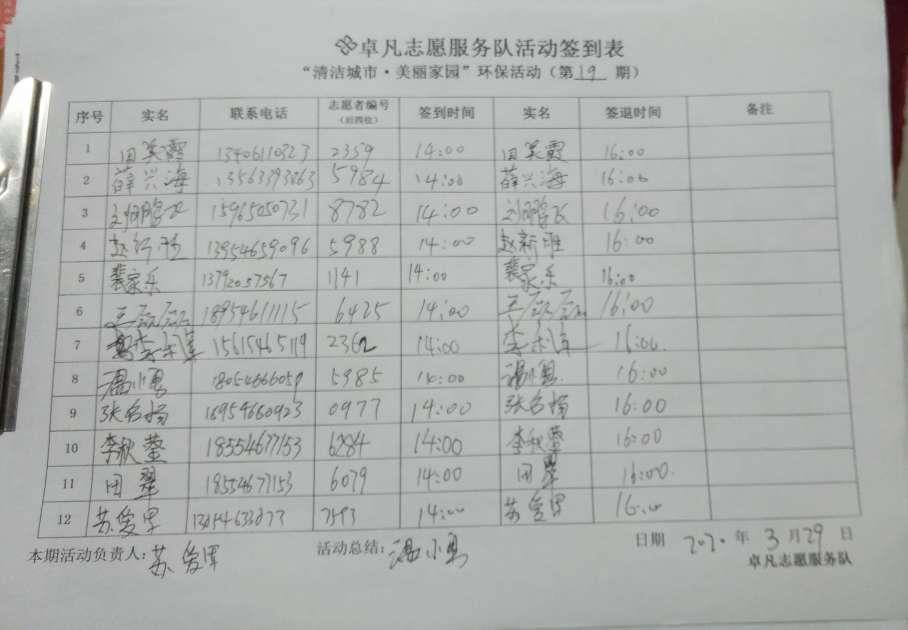 卓凡志愿服务队活动签到表
“清洁城市·美丽家园”环保活动（第19期）
序号 实名 联系电话 志愿者编号（后四位） 签到时间 实名 签退时间 备注
1 田美霞 13406110323 2359 14:00 田美霞 16:00
2 薛兴海 13563393863 5984 14:00 薛兴海 16:00
3 15965050731 8782 14:00 16:00
4 赵新胜 13954659096 5988 14:00 赵新胜 16:00
5 裴家乐 13792057567 1141 14:00 裴家乐 16:00
6 18954611115 6425 14:00 16:00
7 15615465119 2362 14:00 16:00
8 温小勇 18054666059 5985 14:00 温小勇 16:00
9 张名扬 0977 14:00 张名扬 16:00
10 李秋莹 18554677153 6284 14:00 李秋莹 16:00
11 田翠 18554677153 6079 14:00 田翠 16:00
12 苏爱军 7593 14:00 苏爱军 16:00
本期活动负责人：苏爱军 活动总结：温小勇 日期 2020年3月29日
卓凡志愿服务队